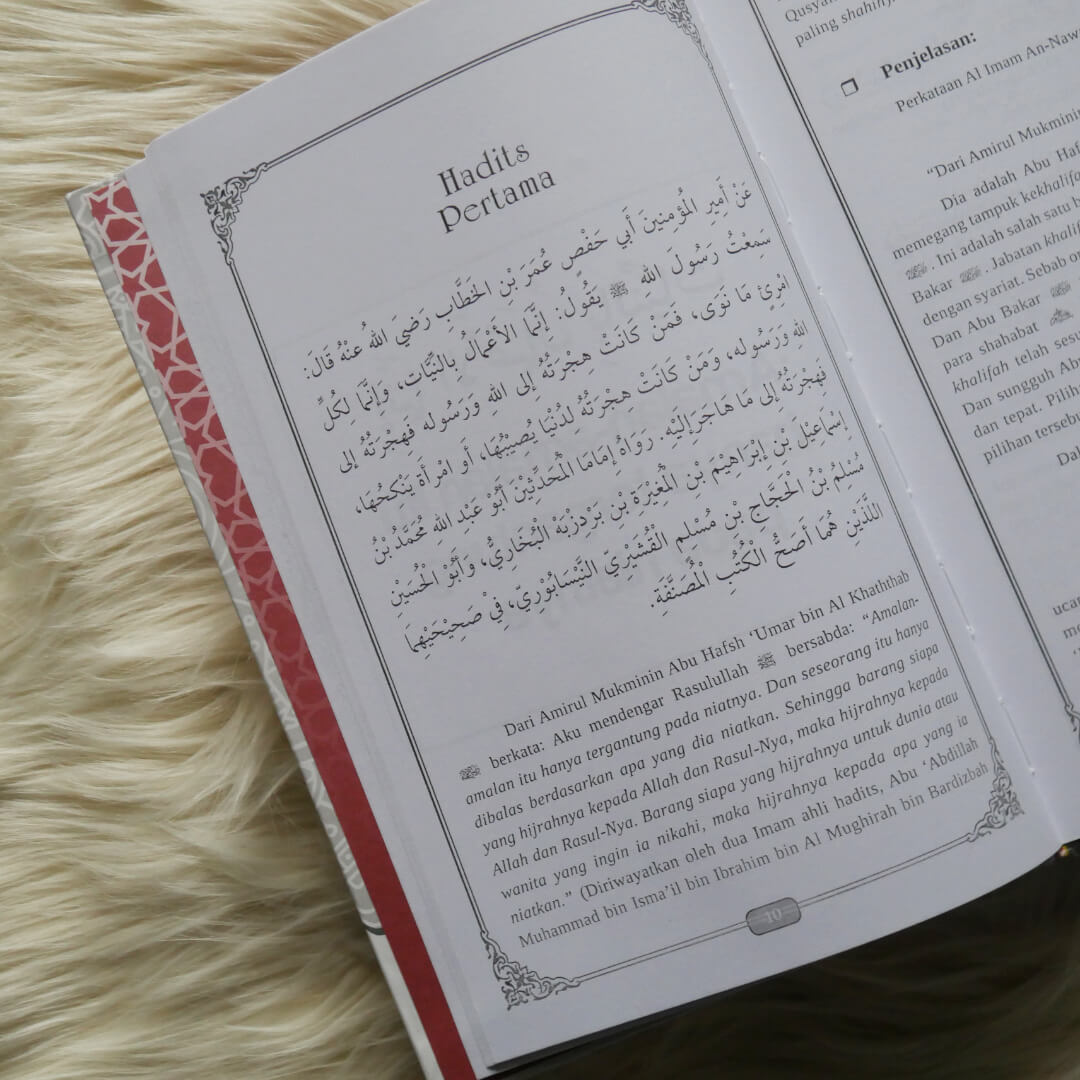 Hadits
Pertama
عَنْ أَمِيرِ المُؤمِنينَ أَبي حَفْصٍ عُمَرَ بْنِ الخَطَّابِ رَضِيَ اللهُ عَنْهُ قَالَ:
سَمِعْتُ رَسُولَ اللهِ ﷺ يَقُولُ: إِنَّمَا الأَعْمَالُ بِالنِّيَّاتِ، وَإنَّمَا لِكُلِّ
امْرِئٍ مَا نَوَى، فَمَنْ كَانَتْ هِجْرَتُهُ إِلى اللهِ وَرَسُوله فَهِجْرَتُهُ إلى
اللهِ وَرَسُوله، ومَنْ كَانَتْ هِجْرَتُهُ لِدُنْيَا يُصِيْبُهَا، أَو امْرأَة يَنْكِحُهَا،
فَهِجْرَتُهُ إِلى مَا هَاجَر إِلَيْهِ. رَوَاه إِمَامَا المُحَدِّثِيْنَ أَبُوْ عَبْدِ اللهِ مُحَمَّدُ بْنُ
إِسْمَاعِيْلَ بْنِ إبْرَاهِيْمَ بْنِ المُغِيْرَة بْنِ بَرْدِزْبَهْ الْبُخَارِيُّ، وَأَبُوْ الْحُسَيْنِ
مُسْلِمُ بْنُ الْحَجَّاجِ بْنِ مُسْلِمٍ القُشَيْرِيّ النَّيْسَابُوْرِيّ، فِيْ صَحِيْحَيْهِمَا
اللَّذَيْنِ هُمَا أصَحُّ الْكُتُبِ الْمُصَنَّفَةِ.
Dari Amirul Mukminin Abu Hafsh 'Umar bin Al Khaththab
berkata: Aku mendengar Rasulullah ﷺ bersabda: "Amalan-
amalan itu hanya tergantung pada niatnya. Dan seseorang itu hanya
dibalas berdasarkan apa yang dia niatkan. Sehingga barang siapa
yang hijrahnya kepada Allah dan Rasul-Nya, maka hijrahnya kepada
Allah dan Rasul-Nya. Barang siapa yang hijrahnya untuk dunia atau
wanita yang ingin ia nikahi, maka hijrahnya kepada apa yang ia
niatkan." (Diriwayatkan oleh dua Imam ahli hadits, Abu 'Abdillah
Muhammad bin Isma'il bin Ibrahim bin Al Mughirah bin Bardizbah
10
Qusya
paling shahih
Penjelasan:
Perkataan Al Imam An-Naw
"Dari Amirul Mukminin
Dia adalah Abu Haf
memegang tampuk kekhalifa
. Ini adalah salah satu b
Bakar . Jabatan khalif
dengan syariat. Sebab or
Dan Abu Bakar
para shahabat
khalifah telah sesu
Dan sungguh Abu
dan tepat. Pilih
pilihan tersebu
Dal
ucap
me